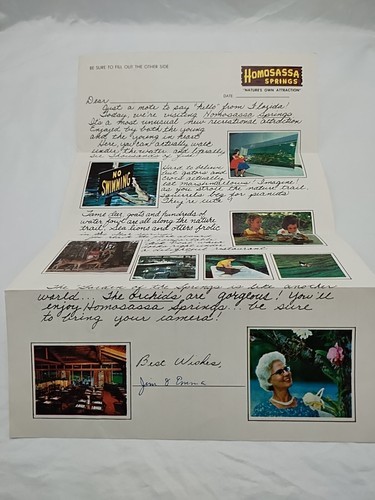 BE SURE TO FILL OUT THE OTHER SIDE
HOMOSASSA
SPRINGS
"NATURE'S OWN ATTRACTION"
DATE
Dear
Just a note to say "hello" from Florida!
Today, we're visiting Homosassa Springs
It's a most unusual new recreational attraction
Enjoyed by both the young
and the young in heart
Here you can actually walk
under the water and literally
see thousands of fish
NO
SWIMMING
Hard to believe
but gators and
coots actually
eat marshmallows! Imagine!
as you stroll the nature trail
squirrels beg for peanuts
They're cute
Tame deer, goats and hundreds of
water fowl are all along the nature
trail. Sea lions and otters frolic
restaurant
The Garden of the Springs is like another
world... The orchids are gorgeous! You'll
enjoy Homosassa Springs... be sure
to bring your camera!
Best Wishes,
Jim & Emma